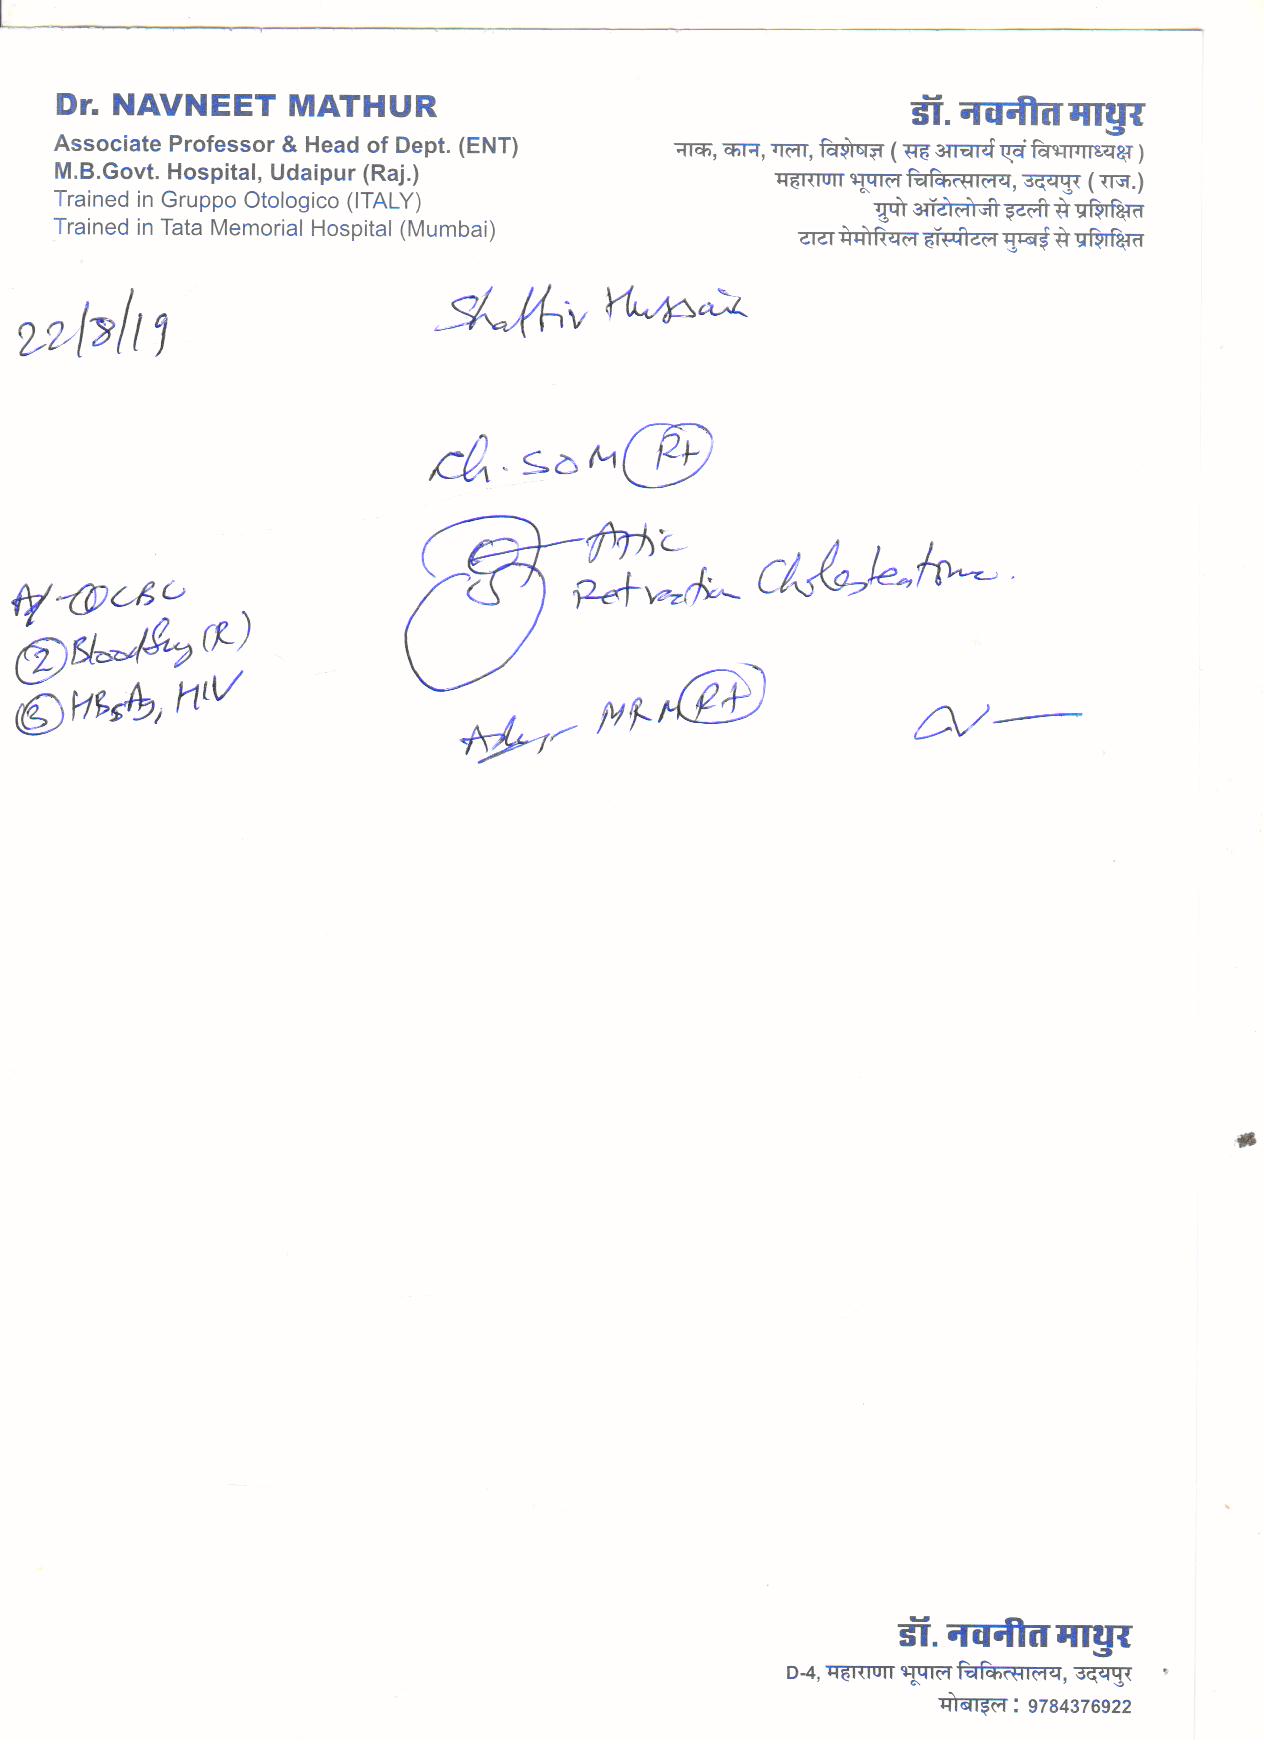 Dr. NAVNEET MATHUR
Associate Professor & Head of Dept. (ENT)
M.B.Govt. Hospital, Udaipur (Raj.)
Trained in Gruppo Otologico (ITALY)
Trained in Tata Memorial Hospital (Mumbai)
डॉ. नवनीत माथुर
नाक, कान, गला, विशेषज्ञ ( सह आचार्य एवं विभागाध्यक्ष )
महाराणा भूपाल चिकित्सालय, उदयपुर ( राज.)
ग्रुपो ऑटोलोजी इटली से प्रशिक्षित
टाटा मेमोरियल हॉस्पीटल मुम्बई से प्रशिक्षित
22/8/19
Hussain
Ch. SOM Rt
Attic
Retraction Cholesteatoma.
① CBC
② Blood (R)
③ HBsAg, HIV
MRM Rt
डॉ. नवनीत माथुर
D-4, महाराणा भूपाल चिकित्सालय, उदयपुर
मोबाइल : 9784376922